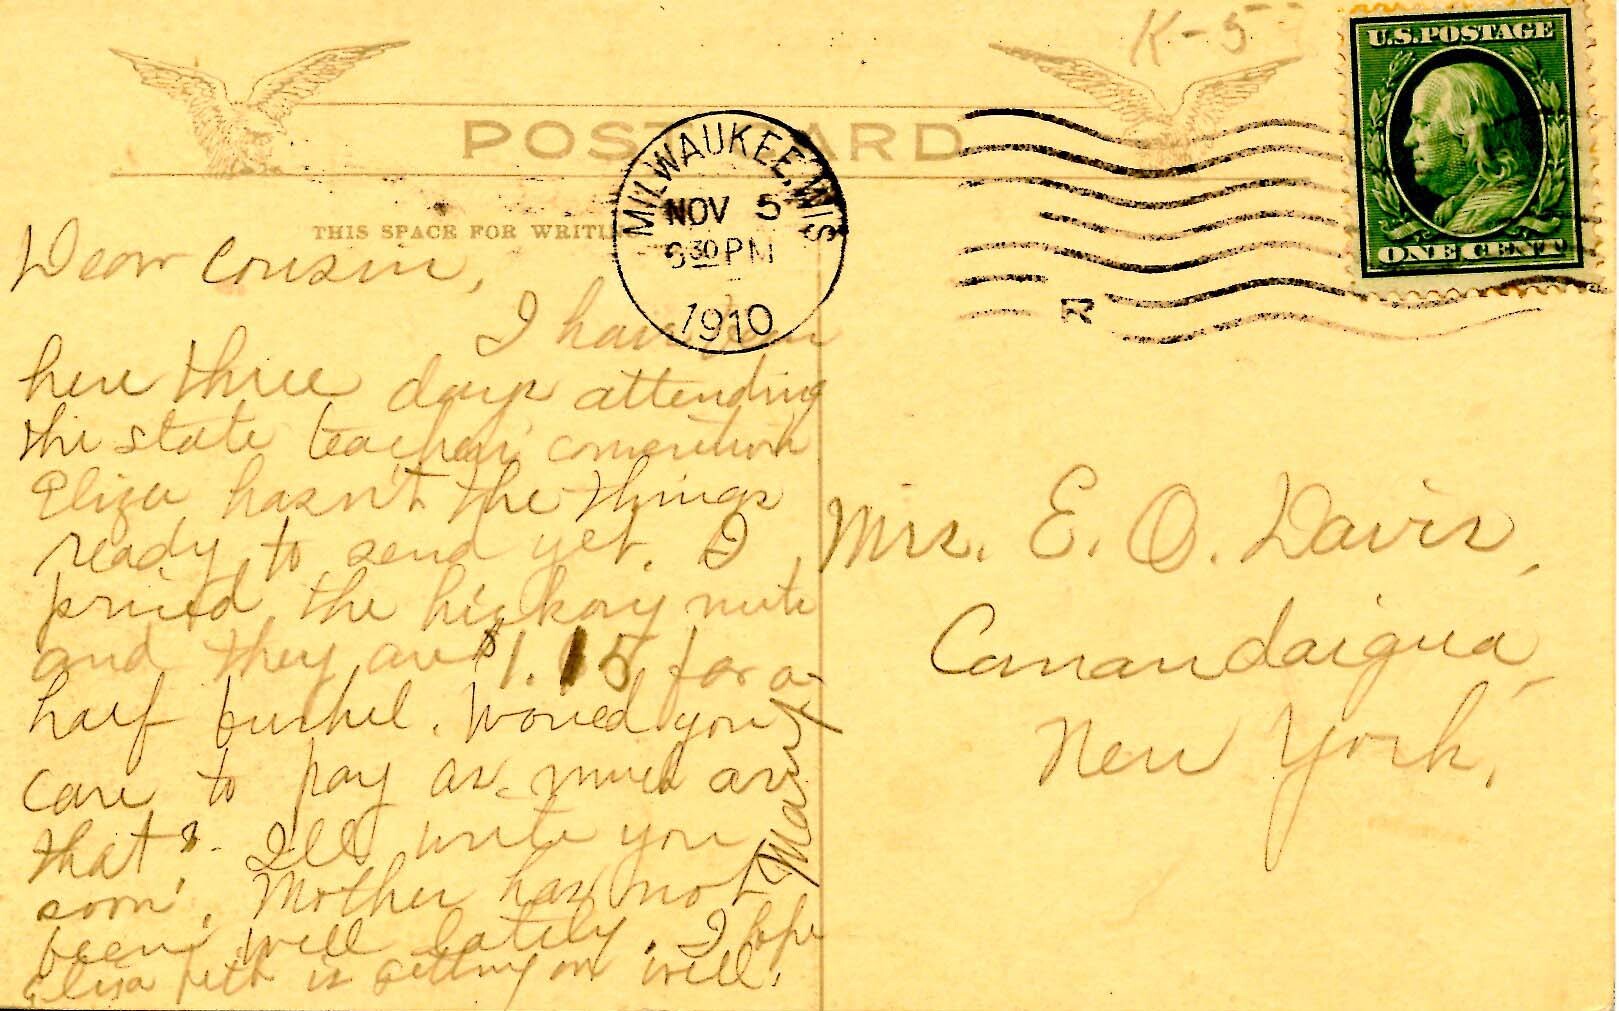 K-5
U.S.POSTAGE
POST CARD
MILWAUKEE, WIS
NOV 5
30 PM
1910
ONE CENT
THIS SPACE FOR WRITIN
Dear Cousin,
I have been
here three days attending
the state teachers' convention
Eliza hasn't the things
ready to send yet. I
priced the hickory nuts
and they are $1.15 for a
half bushel. Would you
care to pay as much as
that? I'll write you
soon. Mother has not
been well lately. I hope
Elizabeth is getting on well.
Mary
Mrs. E. O. Davis,
Canandaigua,
New York.